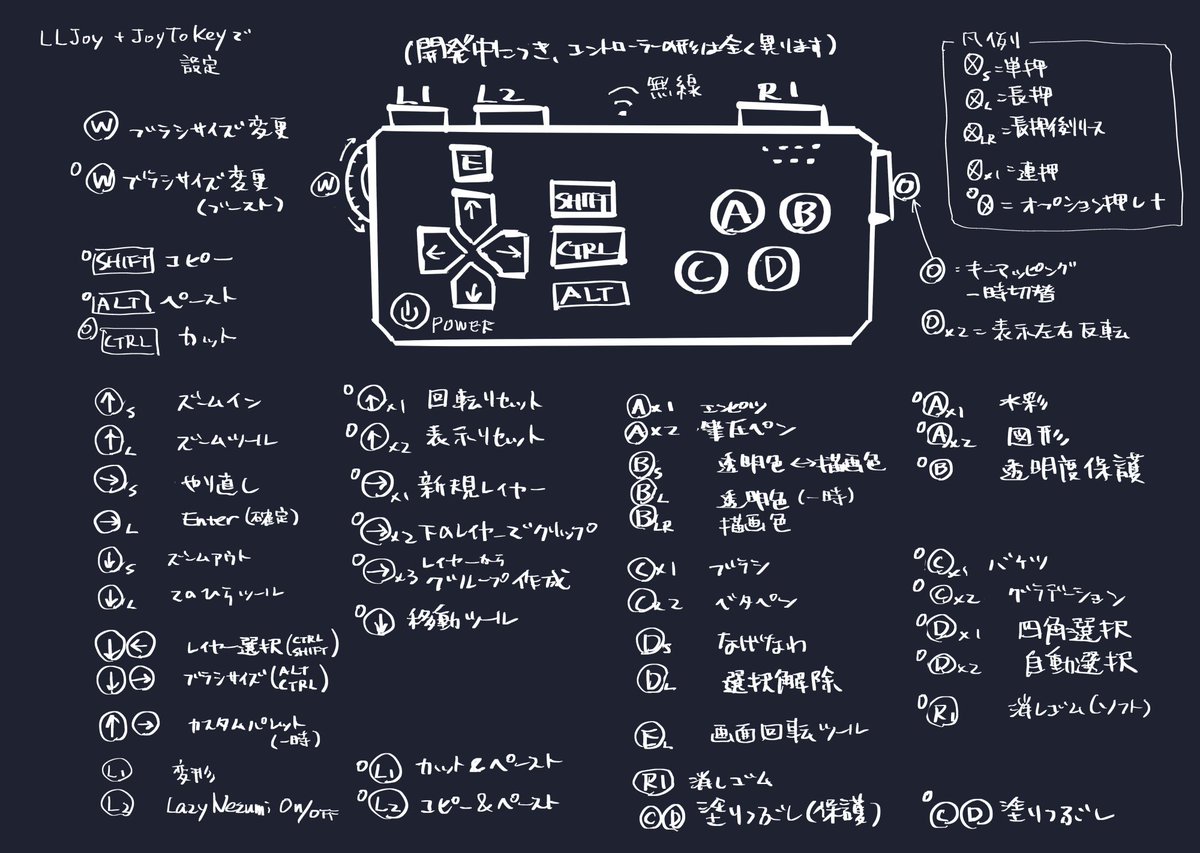 LLJoy + JoyToKeyで
設定
(開発中につき、コントローラーの形は全く異ります)
凡例
Ⓧs=単押
ⓍL=長押
ⓍLR=長押後リリース
Ⓧx1=連押
OⓍ=オプション押し+
L1 L2 無線 R1
Ⓦ ブラシサイズ変更
OⓌ ブラシサイズ変更
(ブースト)
Ⓦ
E
↑
← →
↓
SHIFT
CTRL
ALT
POWER
Ⓐ Ⓑ
Ⓒ Ⓓ
Ⓞ
Ⓞ=キーマッピング
一時切替
Ⓞx2=表示左右反転
O SHIFT コピー
O ALT ペースト
O CTRL カット
↑s ズームイン
↑L ズームツール
→s やり直し
→L Enter(確定)
↓s ズームアウト
↓L てのひらツール
↓← レイヤー選択(CTRL SHIFT)
↓→ ブラシサイズ(ALT CTRL)
↑→ カスタムパレット
(一時)
L1 変形
L2 Lazy Nezumi On/OFF
O↑x1 回転リセット
O↑x2 表示リセット
O→x1 新規レイヤー
O→x2 下のレイヤーでクリップ
O→x3 レイヤーから
グループ作成
O↓ 移動ツール
OL1 カット&ペースト
OL2 コピー&ペースト
Ⓐx1 エンピツ
Ⓐx2 筆圧ペン
Ⓑs 透明色↔描画色
ⒷL 透明色(一時)
ⒷLR 描画色
Ⓒx1 ブラシ
Ⓒx2 ベタペン
Ⓓs なげなわ
ⒹL 選択解除
ⒺL 画面回転ツール
R1 消しゴム
ⒸⒹ 塗りつぶし(保護)
OⒶx1 水彩
OⒶx2 図形
OⒷ 透明度保護
OⒸx1 バケツ
OⒸx2 グラデーション
OⒹx1 四角選択
OⒹx2 自動選択
OR1 消しゴム(ソフト)
OⒸⒹ 塗りつぶし